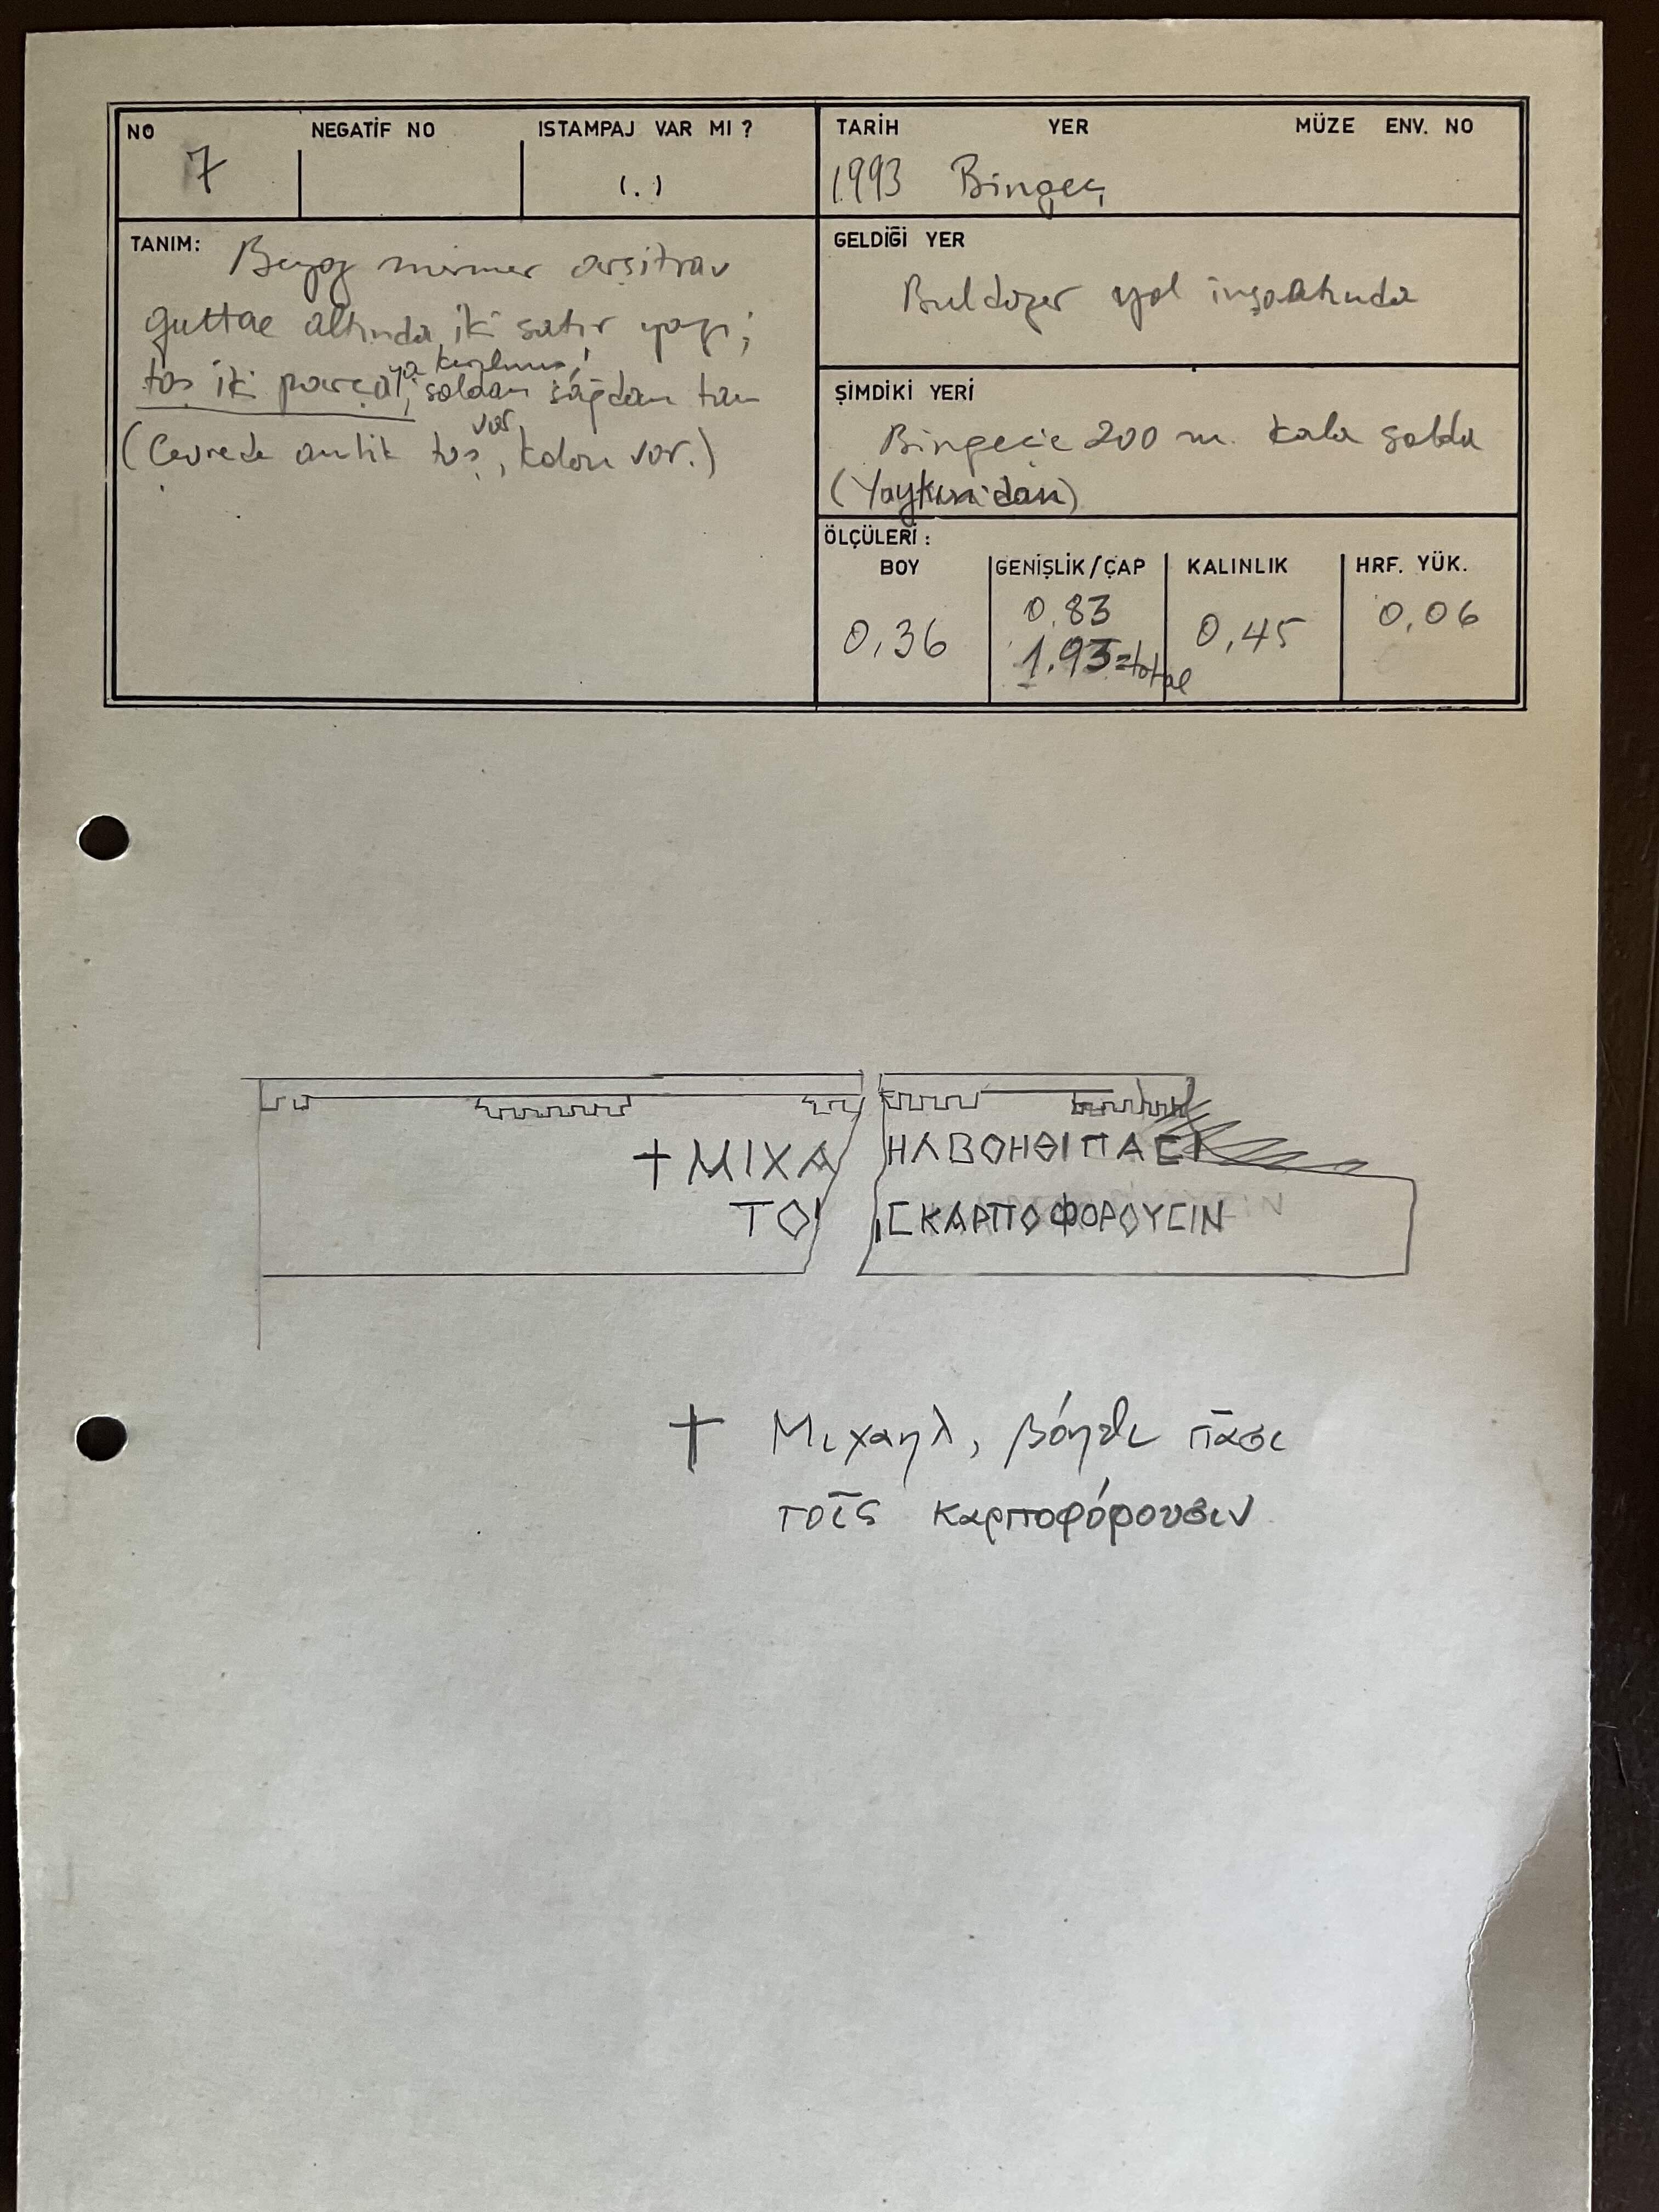 NO NEGATİF NO ISTAMPAJ VAR MI ?
7 (.)
TARİH YER MÜZE ENV. NO
1993 Bingeç
TANIM: Beyaz mermer arşitrav
guttae altında iki satır yazı;
taş iki parçaya kırılmış; soldan sağdan tam
(Çevrede antik taş var, kolon var.)
GELDİĞİ YER
Buldozer yol inşaatında
ŞİMDİKİ YERİ
Bingeç'e 200 m. kala solda
(Yaykın'dan)
ÖLÇÜLERİ :
BOY GENİŞLİK/ÇAP KALINLIK HRF. YÜK.
0,36 0,83 0,45 0,06
1.93=total
†ΜΙΧΑ ΗΛΒΟΗΘΙΠΑCΙ
ΤΟΙ CΚΑΡΠΟΦΟΡΟΥCΙΝ
† Μιχαηλ, βόηθι πᾶσι
τοῖς καρποφόρουσιν